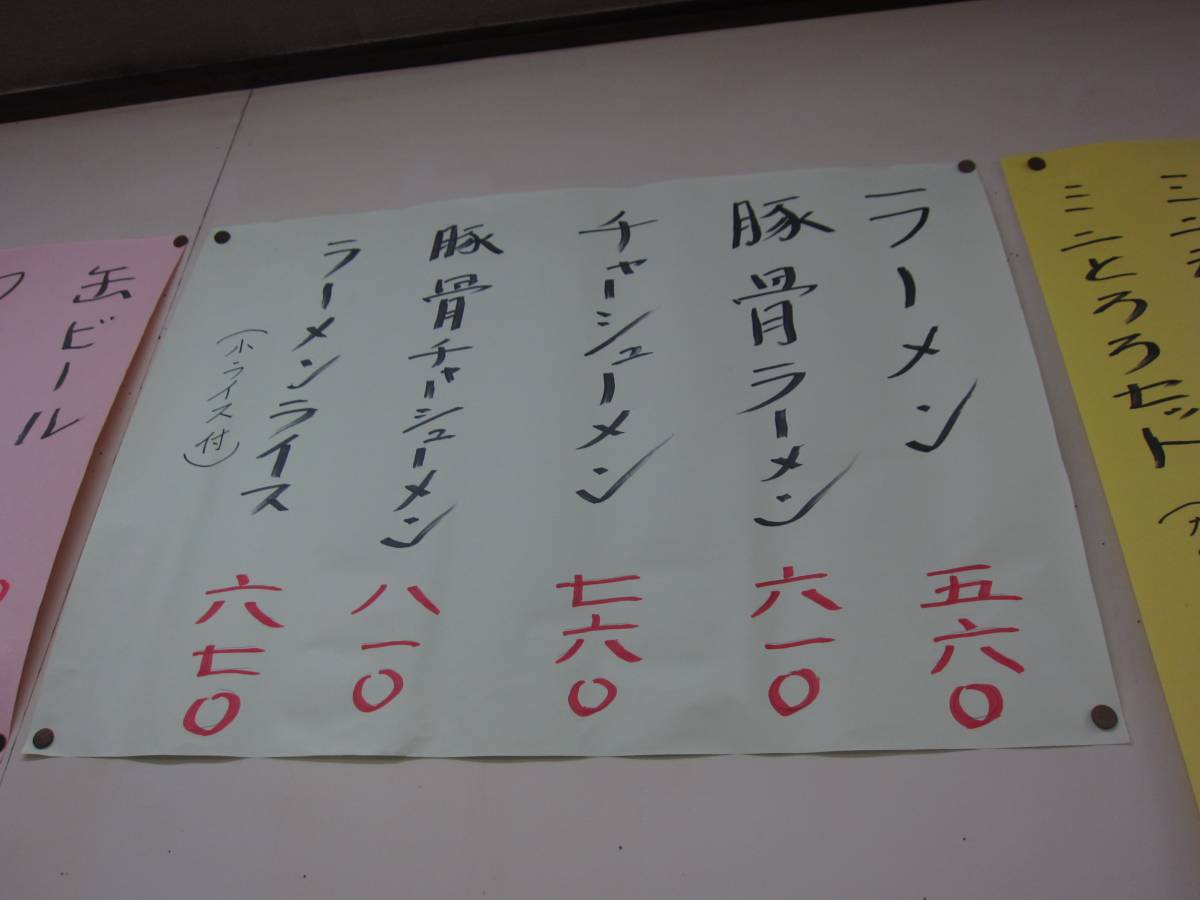 ミニとろろセット
ラーメン 五六〇
豚骨ラーメン 六一〇
チャーシューメン 七六〇
豚骨チャーシューメン 八一〇
ラーメンライス 六七〇
(小ライス付)
缶ビール